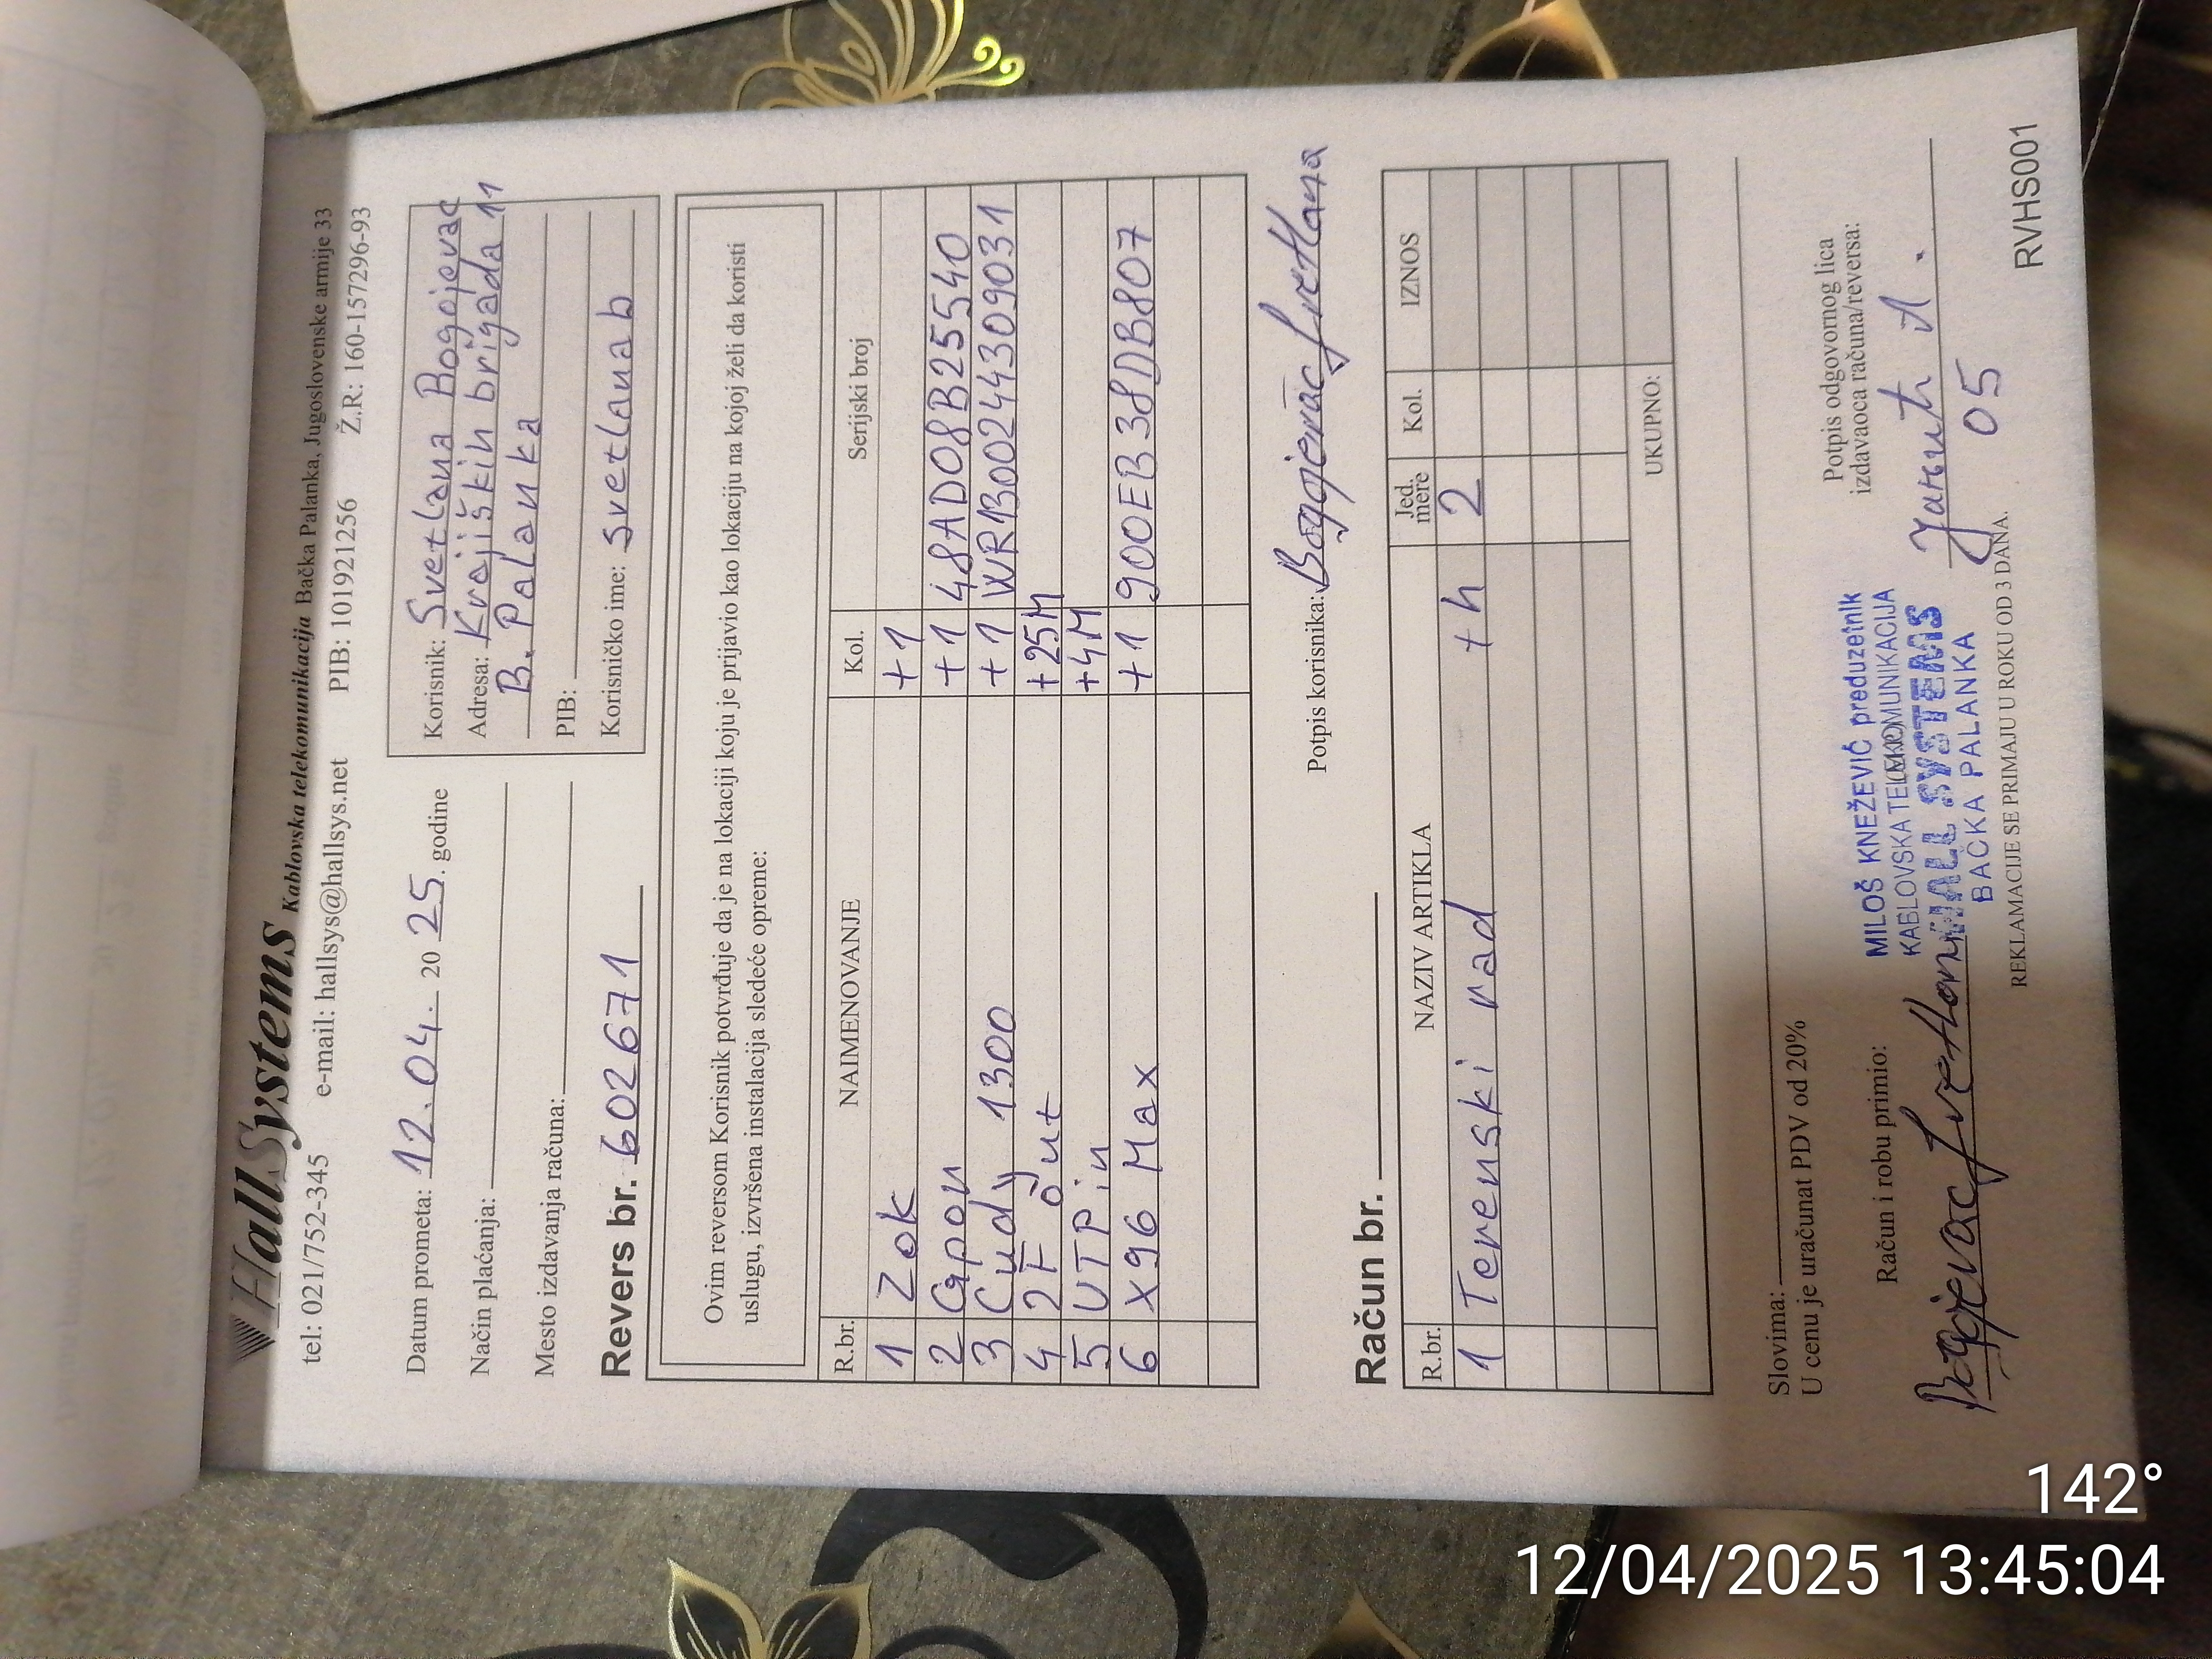 HallSystems Kablovska telekomunikacija Bačka Palanka, Jugoslovenske armije 33
tel: 021/752-345 e-mail: hallsys@hallsys.net PIB: 101921256 Ž.R.: 160-157296-93
Datum prometa: 12.04. 20 25. godine
Način plaćanja:
Mesto izdavanja računa:
Revers br. 602671
Korisnik: Svetlana Bogojevac
Adresa: Krajiških brigada 11
B. Palanka
PIB:
Korisničko ime: svetlanab
Ovim reversom Korisnik potvrđuje da je na lokaciji koju je prijavio kao lokaciju na kojoj želi da koristi
uslugu, izvršena instalacija sledeće opreme:
R.br. NAIMENOVANJE Kol. Serijski broj
1 Zok +1
2 Gpon +1 48AD08B25540
3 Cudy 1300 +1 WR1300244309031
4 2F out +25M
5 UTP in +4M
6 X96 Max +1 900EB38DB807
Potpis korisnika: Bogojevac Svetlana
Račun br.
R.br. NAZIV ARTIKLA Jed. mere Kol. IZNOS
1 Terenski rad +h 2
UKUPNO:
Slovima:
U cenu je uračunat PDV od 20%
Račun i robu primio:
Bogojevac Svetlana
MILOŠ KNEŽEVIĆ preduzetnik
KABLOVSKA TELEKOMUNIKACIJA
HALL SYSTEMS
BAČKA PALANKA
Potpis odgovornog lica
izdavaoca računa/reversa:
05
REKLAMACIJE SE PRIMAJU U ROKU OD 3 DANA.
RVHS001
142°
12/04/2025 13:45:04